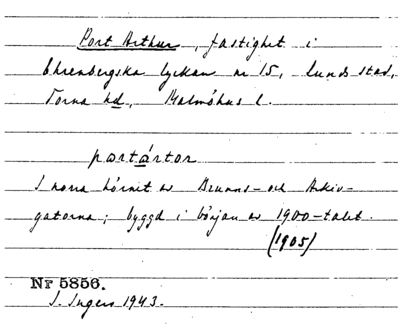 Port Arthur, fastighet i
Ehrenbergska lyckan nr 15, Lunds stad,
Torna hd, Malmöhus l.
portártor
I norra hörnet av Brunns- och Arkiv-
gatorna; byggd i början av 1900-talet.
(1905)
Nr 5856.
I. Ingers 1943.